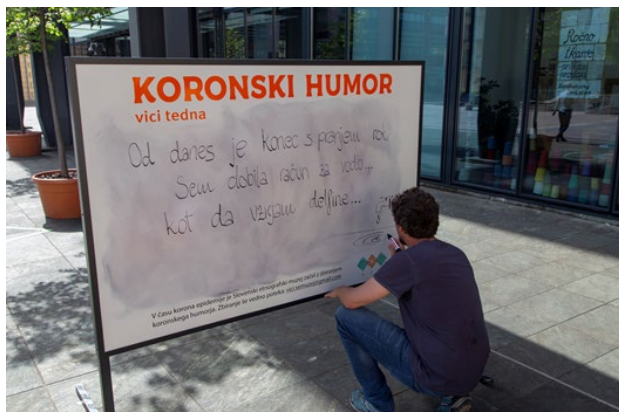 KORONSKI HUMOR
vici tedna
Od danes je konec s pranjem rok.
Sem dobila račun za vodo...
kot da vzrejam delfine...
V času korona epidemije je Slovenski etnografski muzej začel z zbiranjem
koronskega humorja. Zbiranje še vedno poteka:
Ročno
tkanje